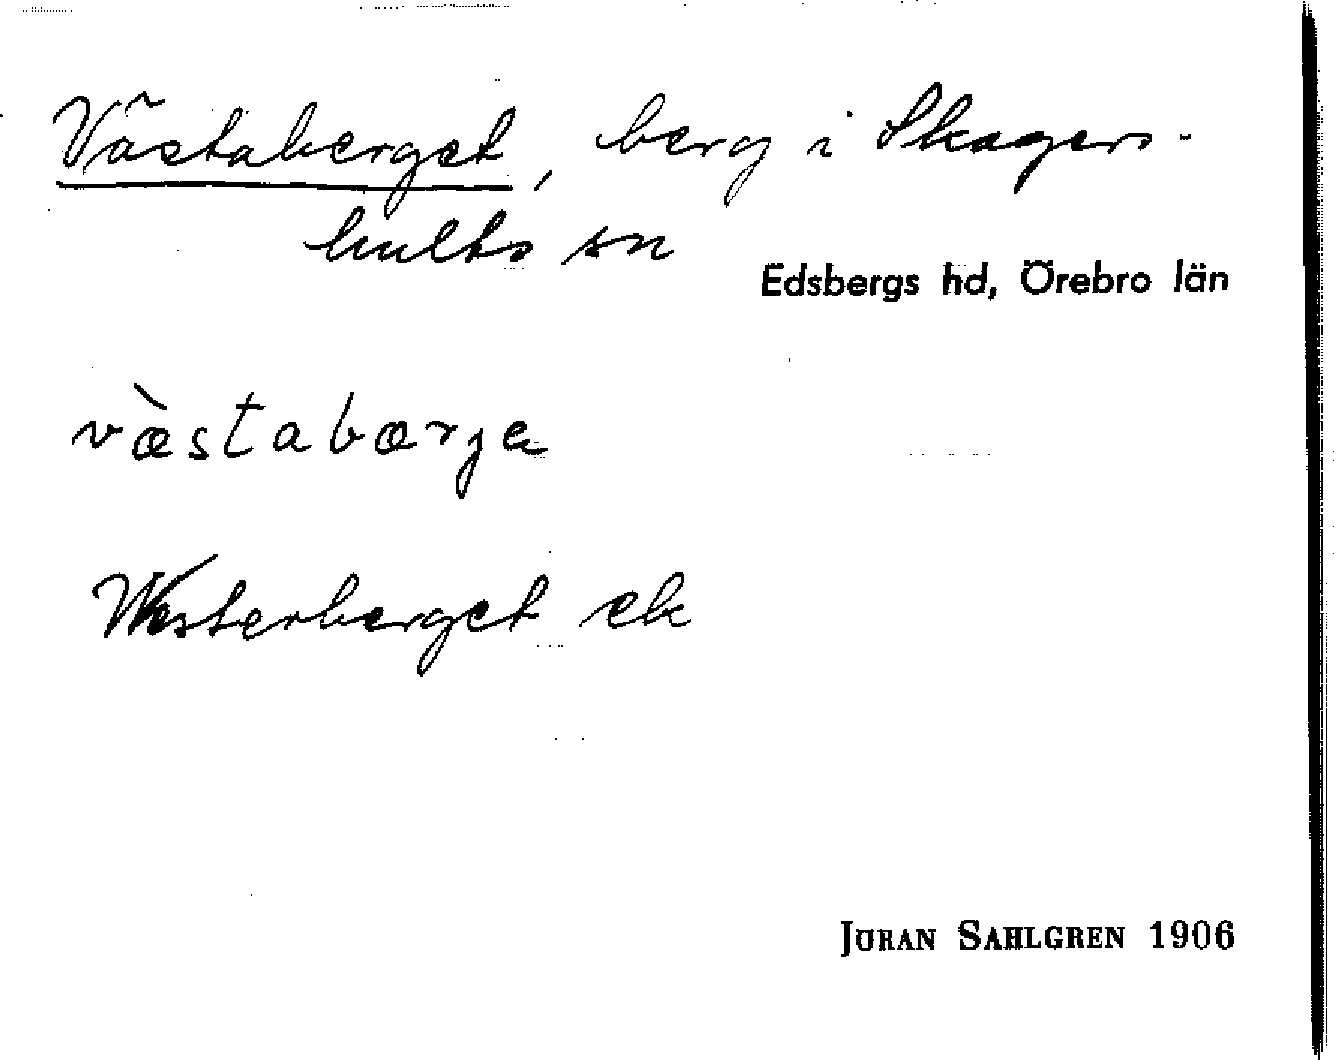 Västaberget, berg i Skagers-
hults sn
Edsbergs hd, Örebro län
væ̀stabærjα
Westerberget ek
JÖRAN SAHLGREN 1906